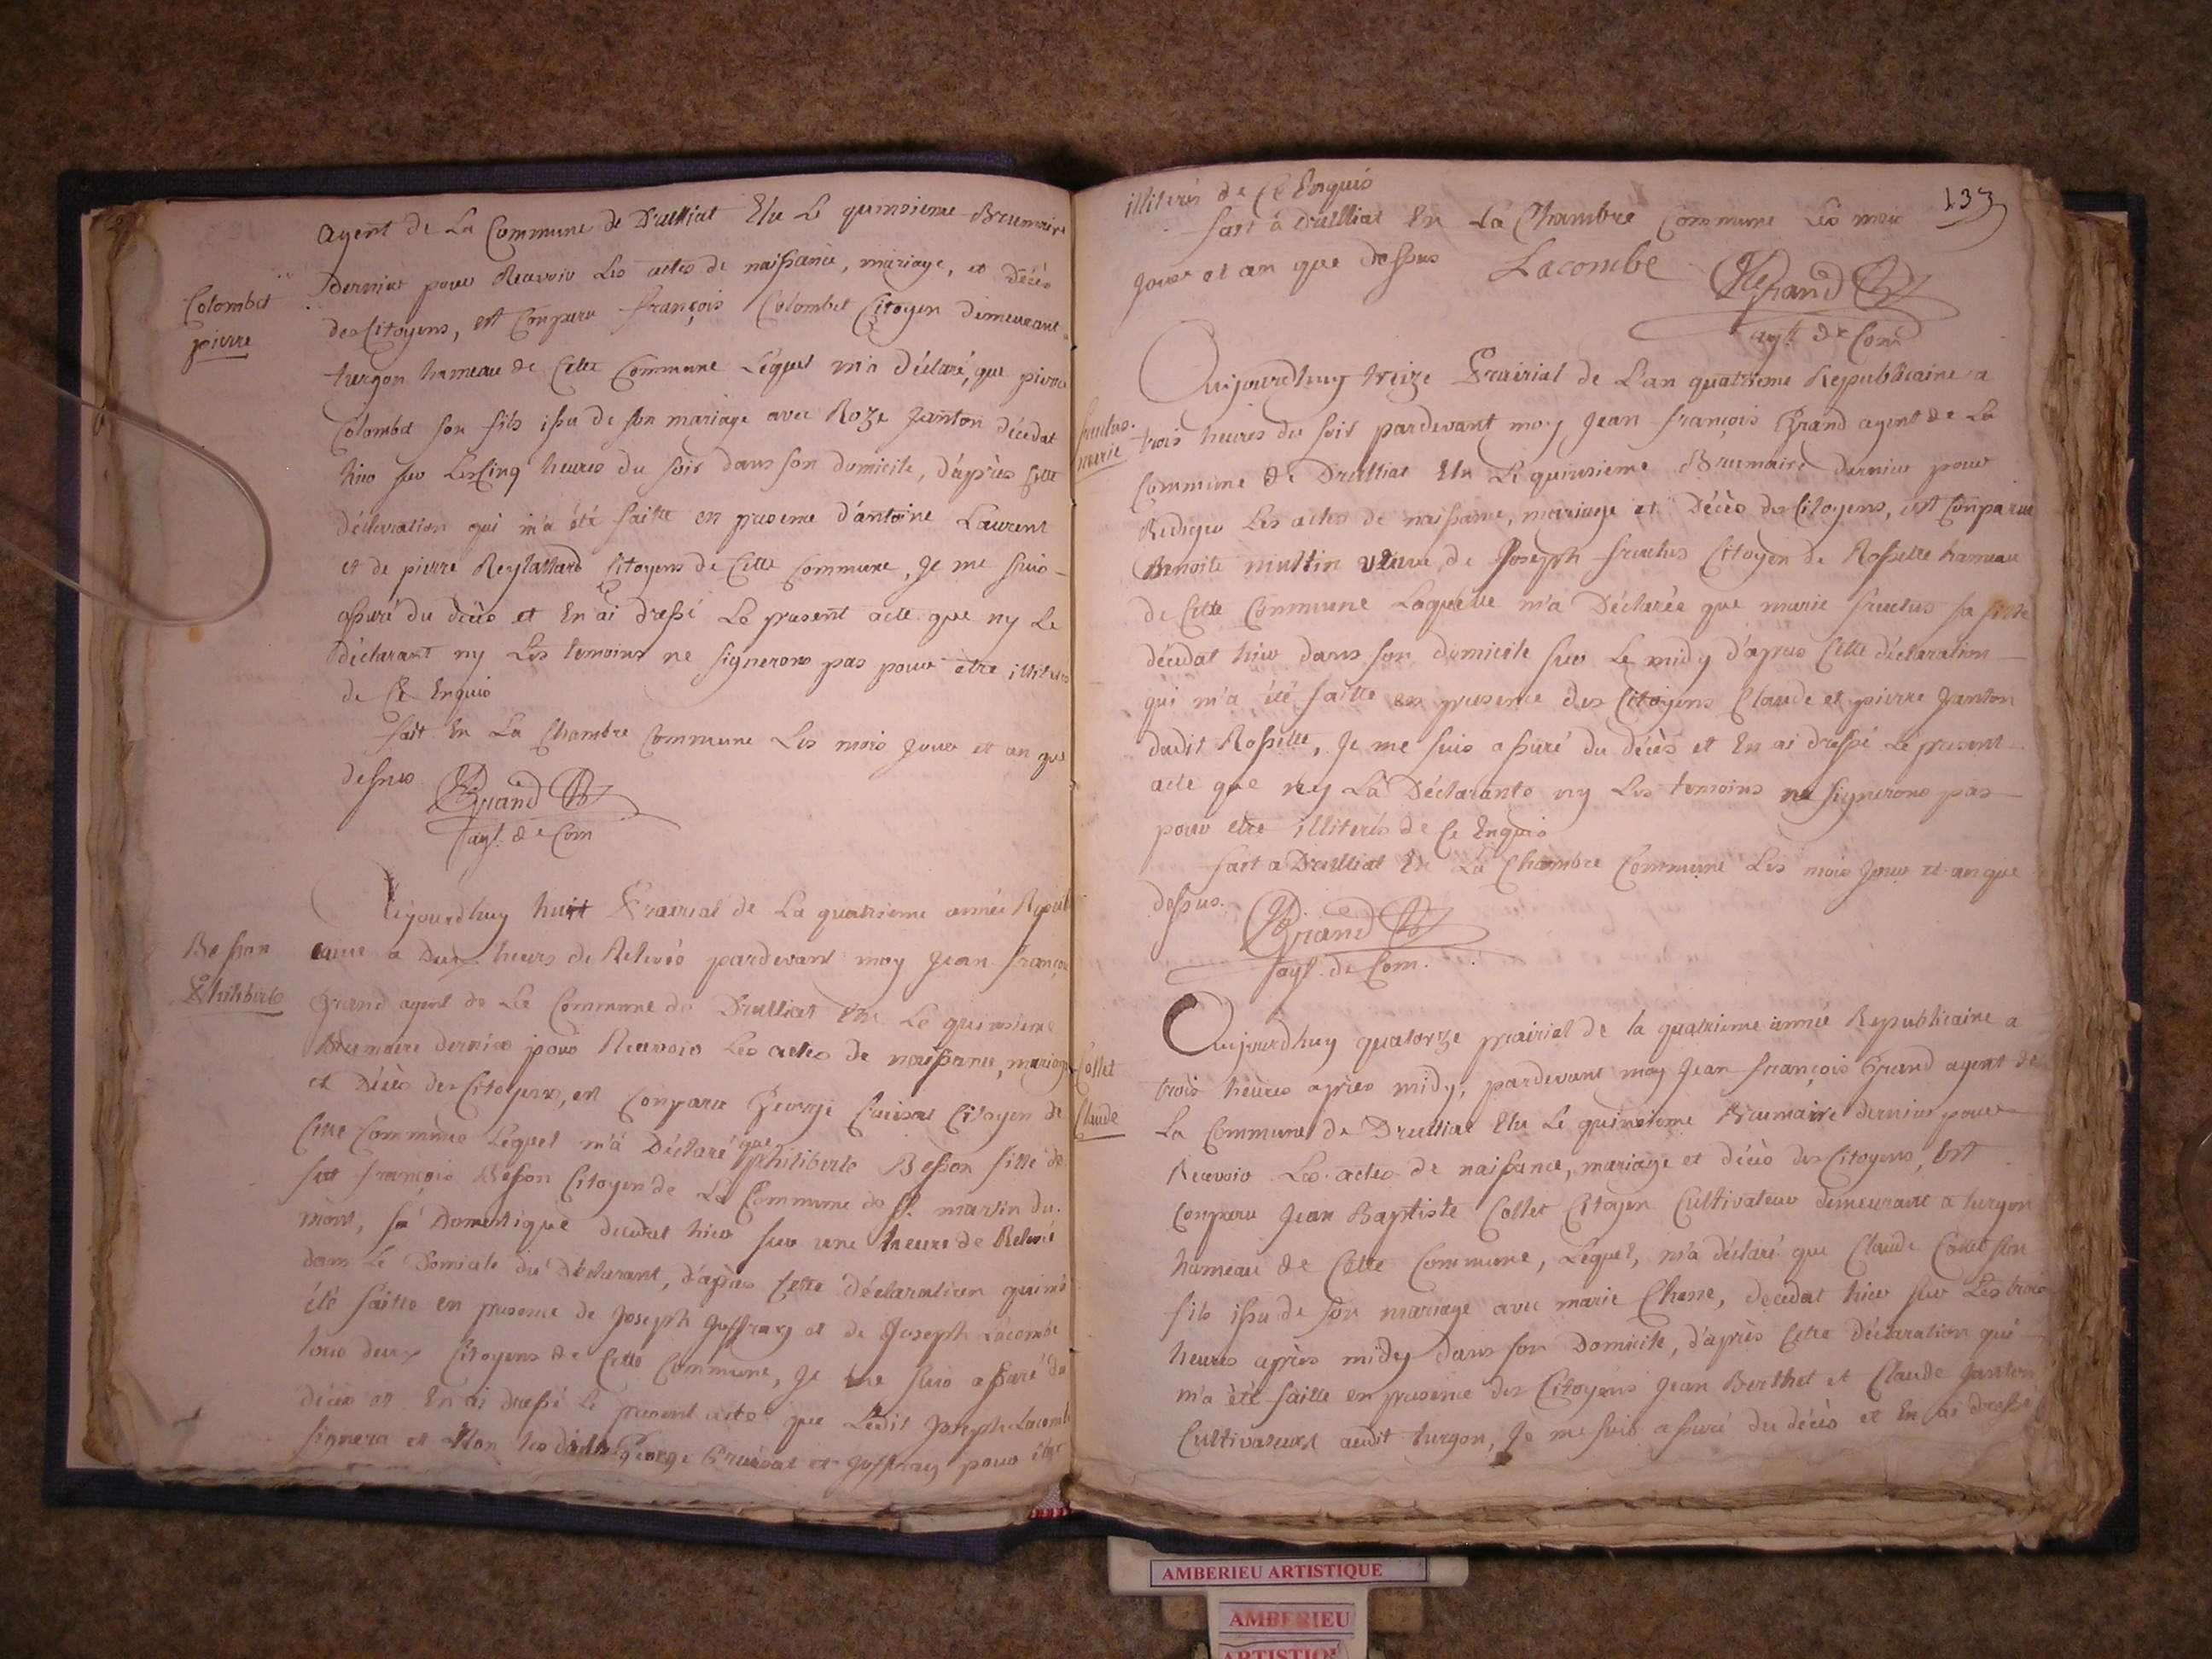 agent de La Commune de Drulliat Elu Le quinsieme Brumaire
dernier pour Recevoir Les actes de naissance, mariage, et décès
Colombet
pierre
des Citoyens, est Comparu françois Colombet Citoyen demeurant
turgon hameau de Cette Commune Lequel m'a déclaré, que pierre
Colombet son fils issu de son mariage avec Roze Janton décédat
hier sur Les Cinq heures du soir dans son domicile, d'après Cette
déclaration qui m'a été faitte en presence d'antoine Laurent
et de pierre Citoyens de Cette Commune, Je me suis
assuré du décès et En ai dressé Le present acte que ny Le
déclarant ny Les temoins ne signerons pas pour être illiterés
de Ce Enquis
fait En La Chambre Commune Les mois Jour et an que
dessus Grand
agt. de Com
Aujourdhuy huit Prairial de La quatrieme année Republi
Besson
Philiberte
caine a Deux heures de Relevés pardevant moy Jean françois
Grand agent de La Commune de Drulliat Elu Le quinsieme
Brumaire dernier pour Recevoir Les actes de naissance, mariage
et Décès des Citoyens, est Comparu George Citoyen de
Cette Commune Lequel m'a Déclaré que philiberte Besson fille de
feu françois Besson Citoyen de La Commune de St. martin du
mont, sa Domestique décédat hier sur une heure de Relevé
dans Le Domicile du Déclarant, d'après Cette déclaration qui m'a
été faitte en presence de Joseph Joffray et de Joseph Lacombe
tous deux Citoyens de Cette Commune, Je me suis assuré du
décès et En ai dressé Le present acte que Ledit Joseph Lacombe
signera et Non Les dits George et Joffray pour être
137
illiterés de Ce Enquis
fait à Drulliat En La Chambre Commune Les mois
Jour et an que Dessus Lacombe Grand
agt. de Com
Aujourdhuy treize Prairial de L'an quatrieme Republicaine a
fructus
marie
trois heures du soir pardevant moy Jean françois Grand agent de La
Commune de Drulliat Elu Le quinsieme Brumaire dernier pour
Rediger Les actes de naissance, mariage et Décès des Citoyens, est Comparue
Benoite veuve de Joseph fructus Citoyen de Rossette hameau
de Cette Commune Laquelle m'a Déclarée que marie fructus sa fille
décédat hier dans son domicile sur Le midy d'après Cette déclaration
qui m'a été faitte en presence des Citoyens Claude et pierre Janton
dudit Rossette, Je me suis assuré du décès et En ai dressé Le present
acte que ny La Déclarante ny Les temoins ne signerons pas
pour etre illiterés de Ce Enquis
fait a Drulliat En La Chambre Commune Les mois Jour et an que
dessus. Grand
agt. de Com.
Aujourdhuy quatorze prairial de la quatrieme année Republicaine a
Collet
Claude
trois heures après midy, pardevant moy Jean françois Grand agent de
La Commune de Drulliat Elu Le quinsieme Brumaire dernier pour
Recevoir Les actes de naissance, mariage et décès des Citoyens, Est
Comparu Jean Baptiste Collet Citoyen Cultivateur demeurant a turgon
hameau de Cette Commune, Lequel, m'a déclaré que Claude Collet son
fils issu de son mariage avec marie Chane, décédat hier sur Les trois
heures après midy dans son Domicile, d'après Cette Déclaration qui
m'a été faitte en presence des Citoyens Jean Berthet et Claude Janton
Cultivateurs audit turgon, Je me suis assuré du décès et En ai dressé
AMBERIEU ARTISTIQUE
AMBERIEU
ARTISTIQUE